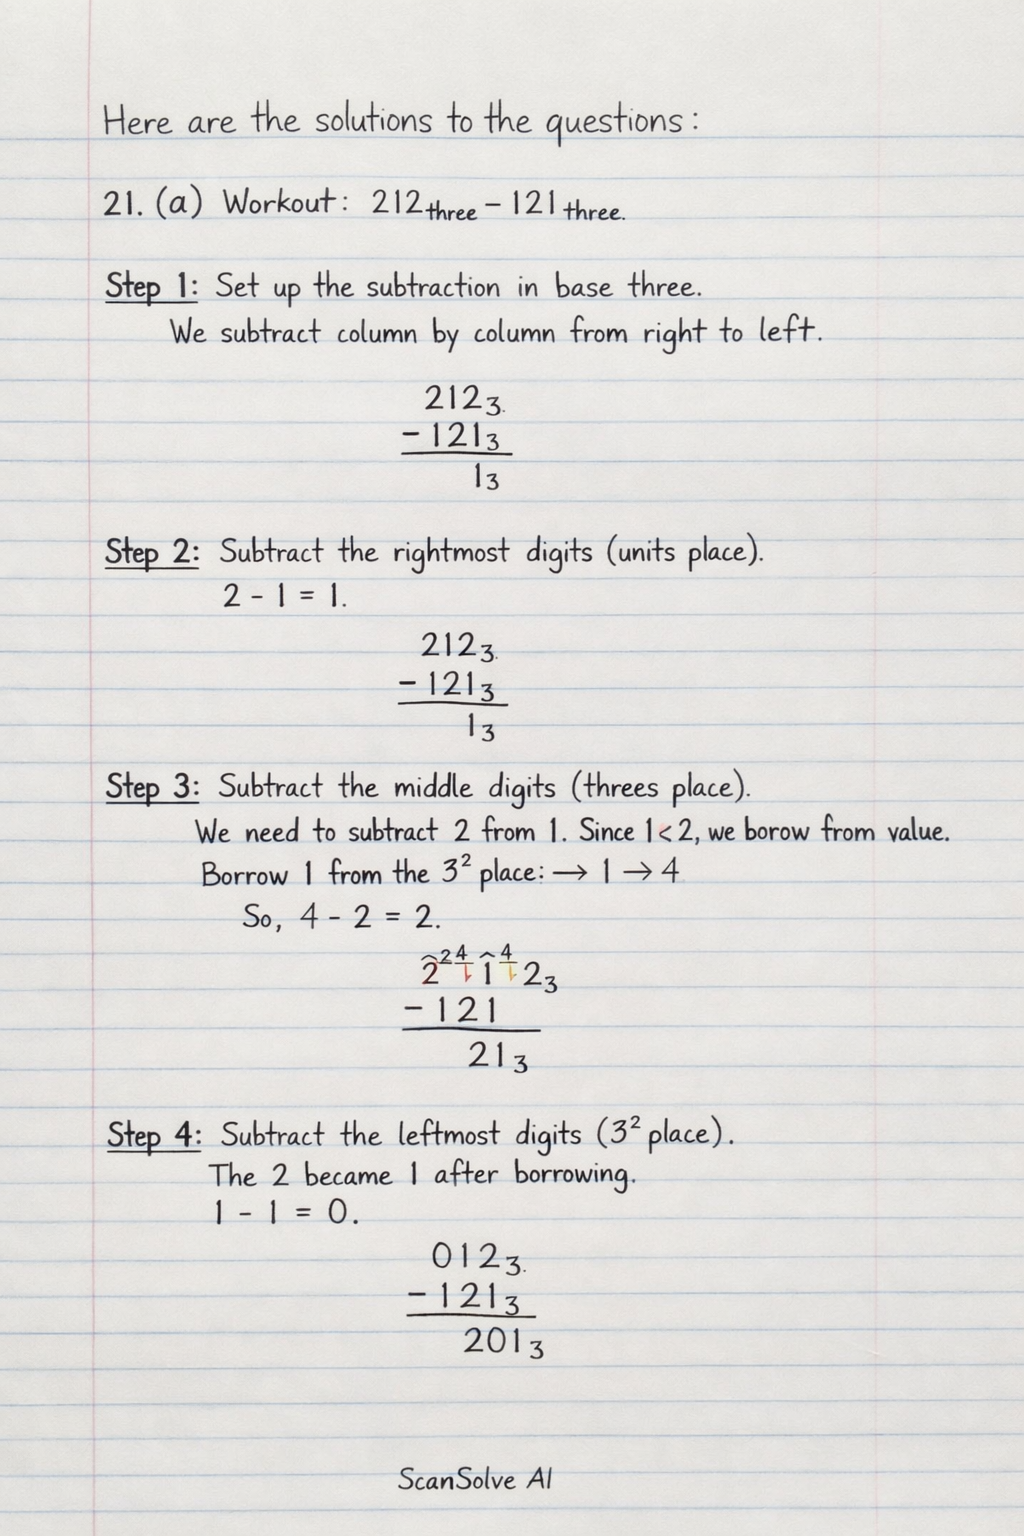 Here are the solutions to the questions:
21. (a) Workout: 212three – 121three.
Step 1: Set up the subtraction in base three.
We subtract column by column from right to left.
212₃.
– 121₃
1₃
Step 2: Subtract the rightmost digits (units place).
2 - 1 = 1.
212₃.
– 121₃
1₃
Step 3: Subtract the middle digits (threes place).
We need to subtract 2 from 1. Since 1<2, we borow from value.
Borrow 1 from the 3² place: → 1 → 4
So, 4 - 2 = 2.
2 4 4
2 1 2₃
– 121
21₃
Step 4: Subtract the leftmost digits (3² place).
The 2 became 1 after borrowing.
1 - 1 = 0.
012₃.
– 121₃
201₃
ScanSolve AI